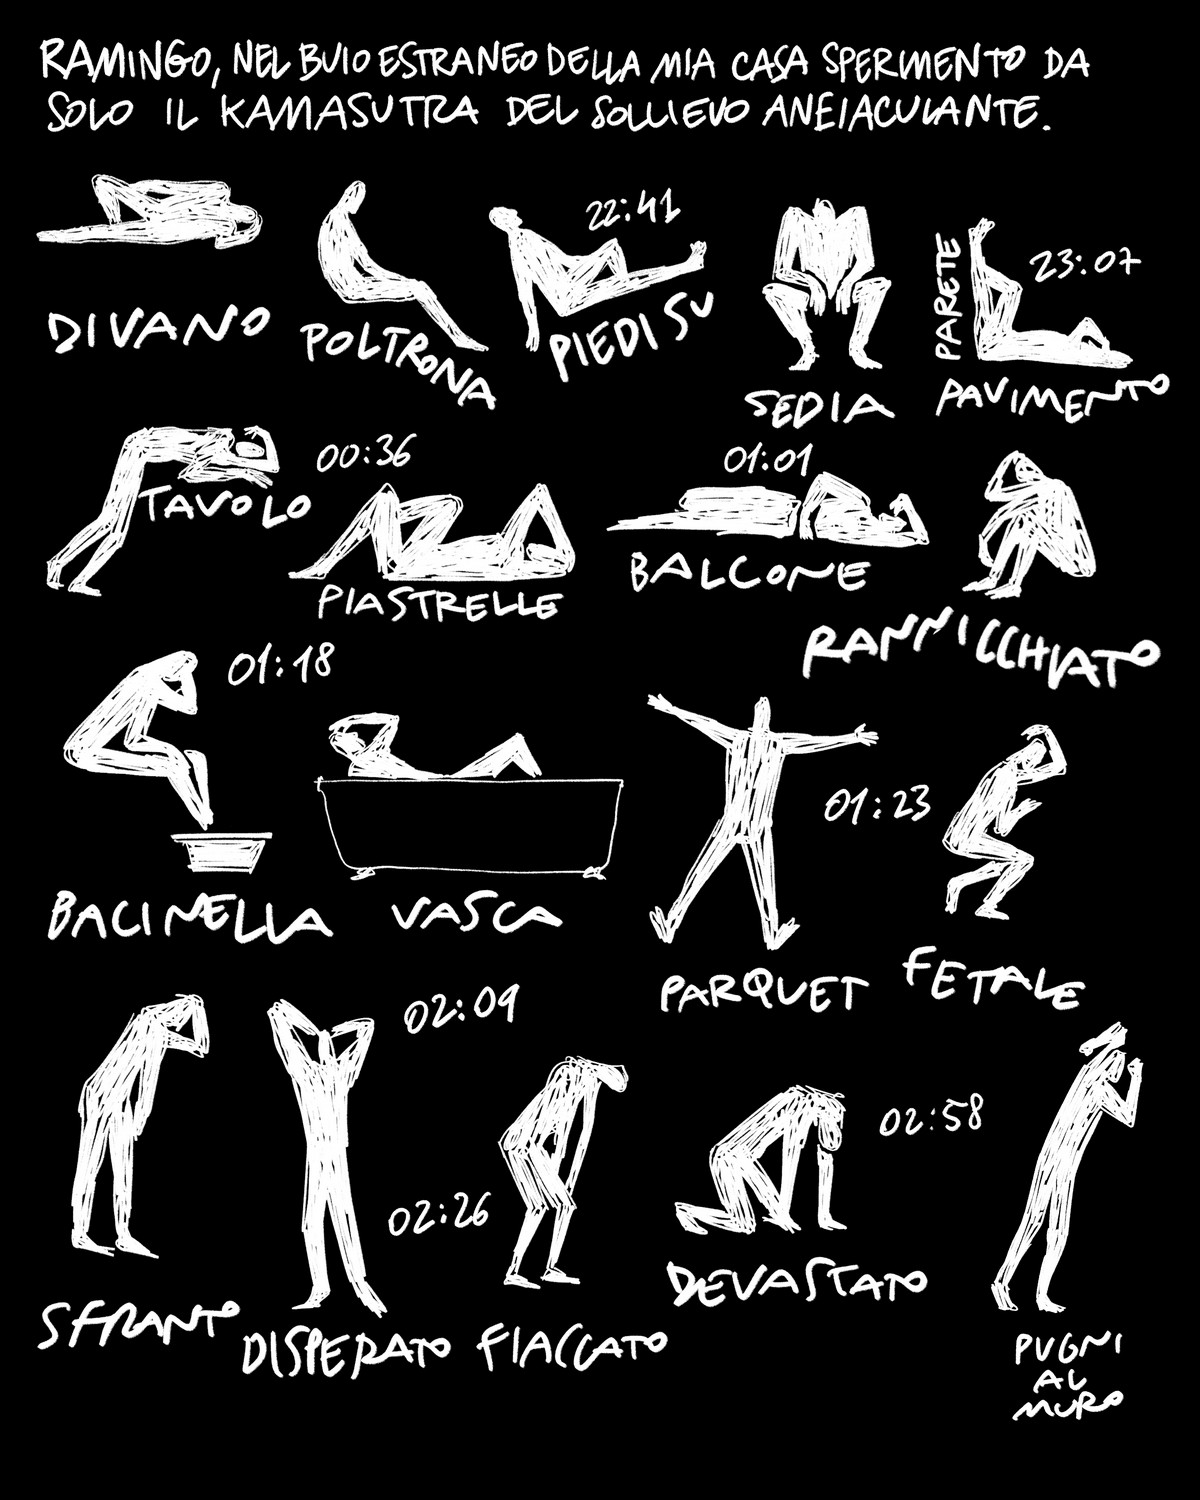 RAMINGO, NEL BUIO ESTRANEO DELLA MIA CASA SPERIMENTO DA
SOLO IL KAMASUTRA DEL SOLLIEVO ANEIACULANTE.
DIVANO
POLTRONA
22:41
PIEDI SU
SEDIA
PARETE
23:07
PAVIMENTO
TAVOLO
00:36
PIASTRELLE
01:01
BALCONE
RANNICCHIATO
01:18
BACINELLA
VASCA
PARQUET
01:23
FETALE
SFRANTO
02:09
DISPERATO
02:26
FIACCATO
DEVASTATO
02:58
PUGNI
AL
MURO